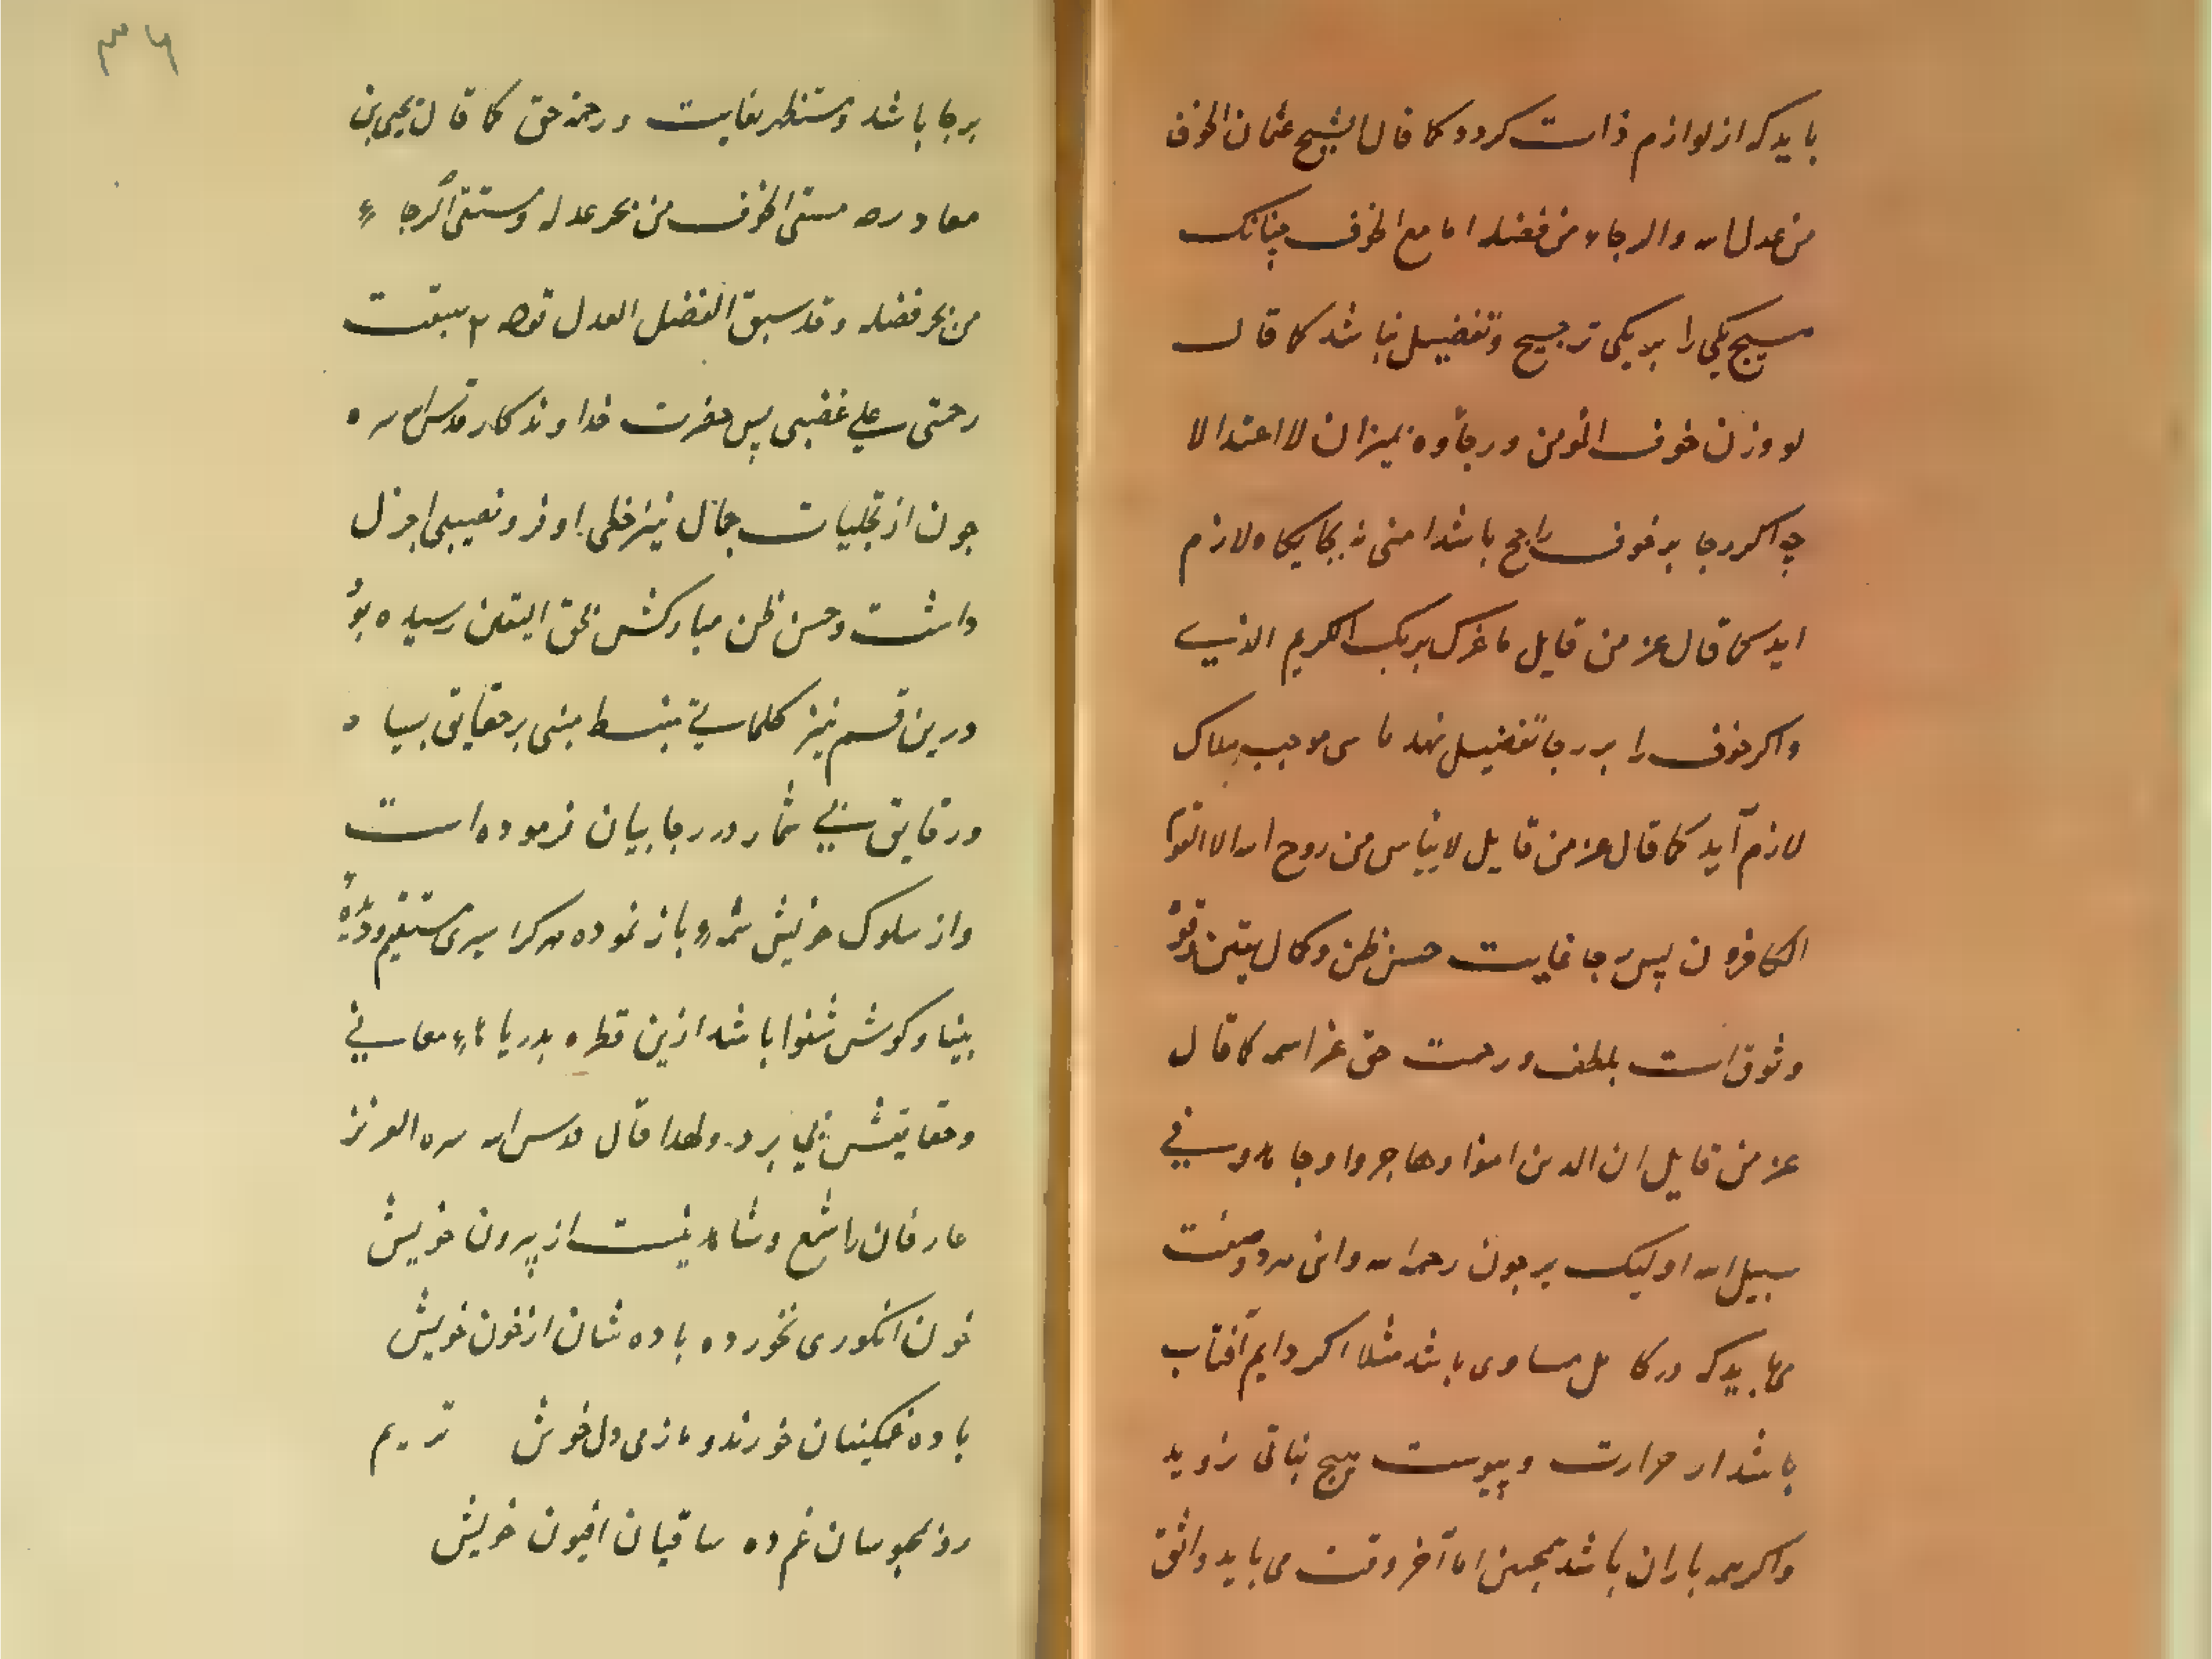 باید که از لوازم ذات کردد کما قال الشیخ عثمان الخوف
من عدل الله والرجاء من فضله اما مع الخوف چنانک
هیچ یکی را بر یکی ترجیح و تفضیل نباشد کما قال
لو وزن خوف المومن ورجاؤه بمیزان لااعتدالا
چه اکر رجا بر خوف راجح باشد امنی نه بجایکاه لازم
اید کما قال عز من قایل ما غرک بربک الکریم الذی
واکر خوف را بر رجا تفضیل نهد موجب هلاک
لازم آید کما قال عز من قایل لا ییاس من روح الله الا القوم
الکافرون پس رجا غایت حسن ظن وکمال یقین وقوة
وثوق است بلطف ورحمت حق عز اسمه کما قال
عز من قایل ان الدین امنوا وهاجروا وجاهدوا فی
سبیل الله اولیک یرجون رحمة الله واین هر دو صفت
می باید که در کامل مساوی باشد مثلا اکر دایم آفتاب
باشد از حرارت و یبوست هیچ نباتی نروید
واکر همه باران باشد همچنین اما آخر وقت می باید واثق
۳۶
برجا باشد و مستظهر بغایت ورحمة حق کما قال یحیی بن
معاد رضه مستقی الخوف من بحر عدله ومستقی الرجاء
من بحر فضله وقد سبق الفضل العدل لقوله تع سبقت
رحمتی علی غضبی پس حضرت خداوندکار قدس الله سره
جون از تجلیات جمال نیز حظی اوفر ونصیبی اجزل
داشت وحسن ظن مبارکش بحق الیقین رسیده بود
درین قسم نیز کلماتی منبسط مبنی بر حقایق بسیار
ورقایق بی شمار در رجا بیان فرموده است
واز سلوک خویش شمه‌ای باز نموده هر کرا سیری مستقیم و دیدهٔ
بینا وکوش شنوا باشد ازین قطره بدریاء معانی
وحقایقش پی برد ولهدا قال قدس الله سره العزیز
عارفان را شمع وشاهد نیست از بیرون خویش
خون انکوری نخورده باده شان از خون خویش
باده غمکینان خورند و ما ز می دل خوش تریم
رو بمحبوسان غم ده ساقیان افیون خویش